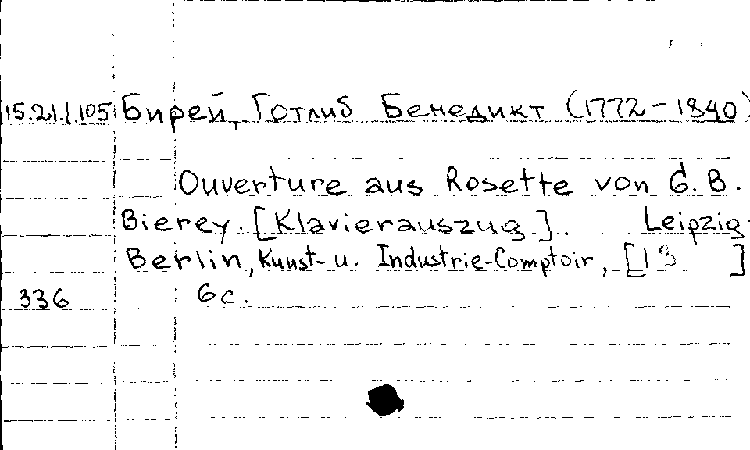 15.21.1.105 Бирей, Готлиб Бенедикт (1772-1840)
Ouverture aus Rosette von G. B.
Bierey. [Klavierauszug]. Leipzig
Berlin, Kunst- u. Industrie-Comptoir, [18 ]
336 6c.